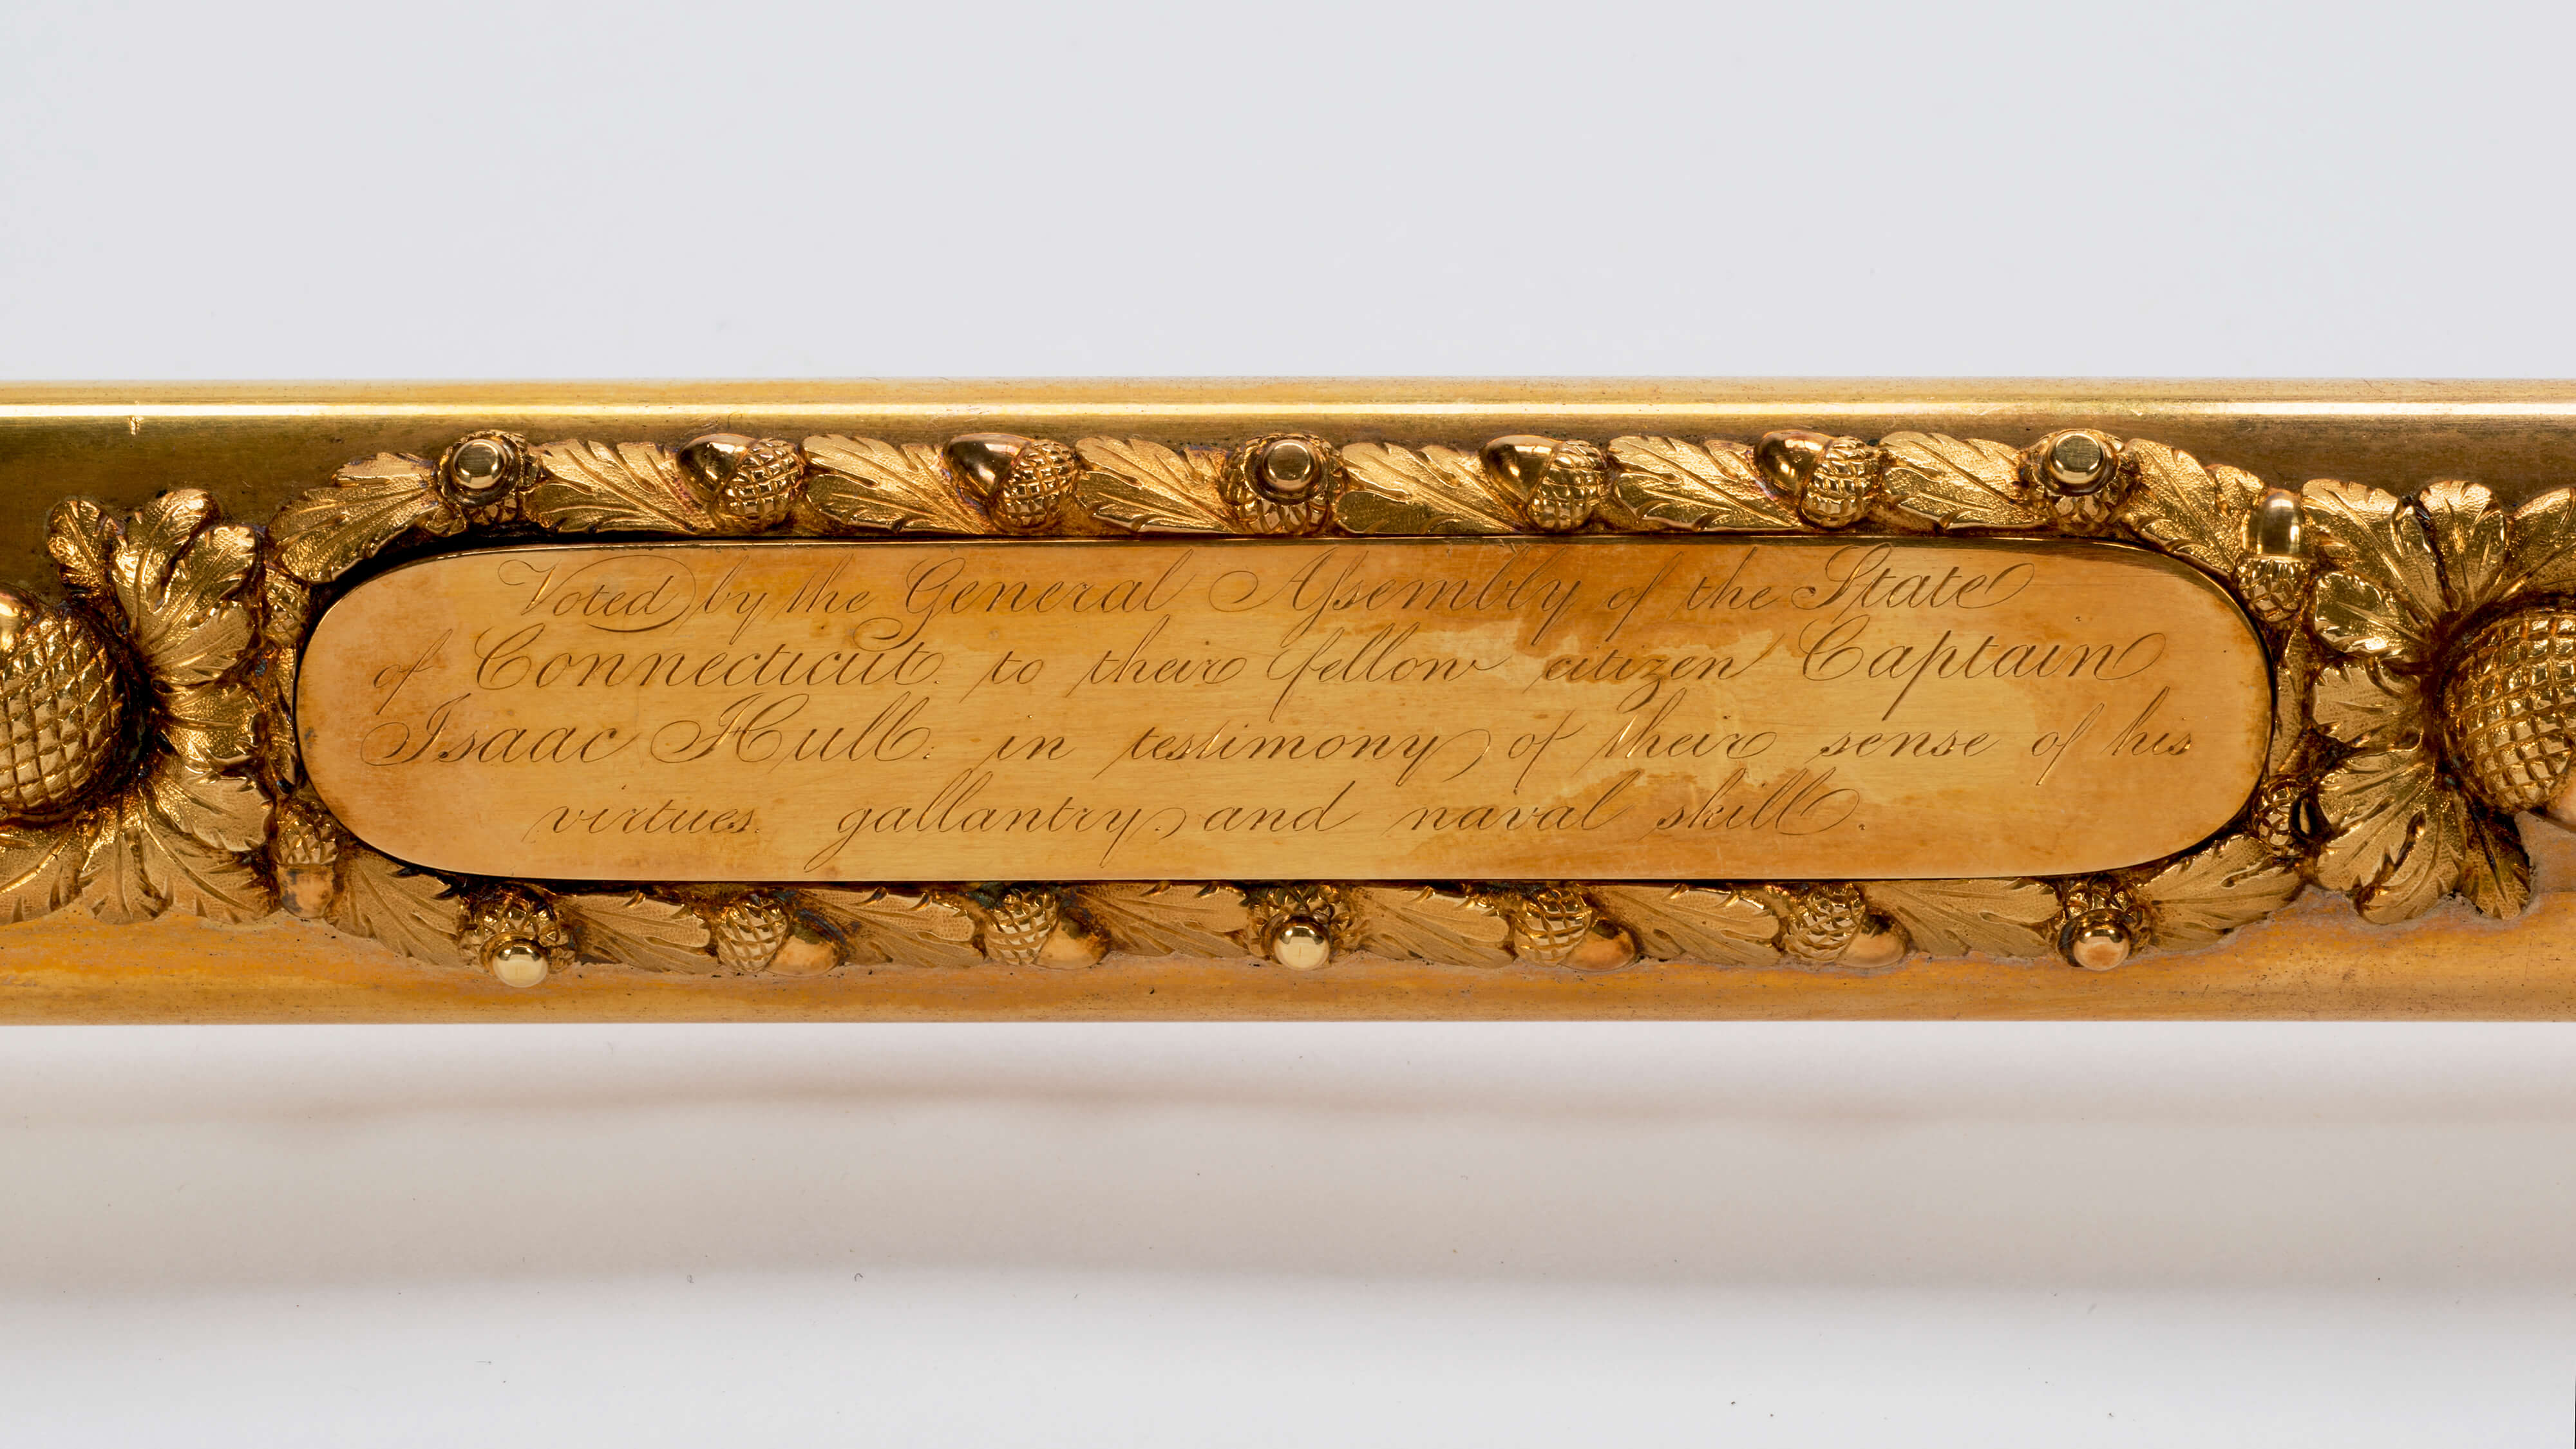 Voted by the General Aſsembly of the State
of Connecticut. to their fellow citizen Captain
Isaac Hull: in testimony of their sense of his
virtues. gallantry. and naval skill.